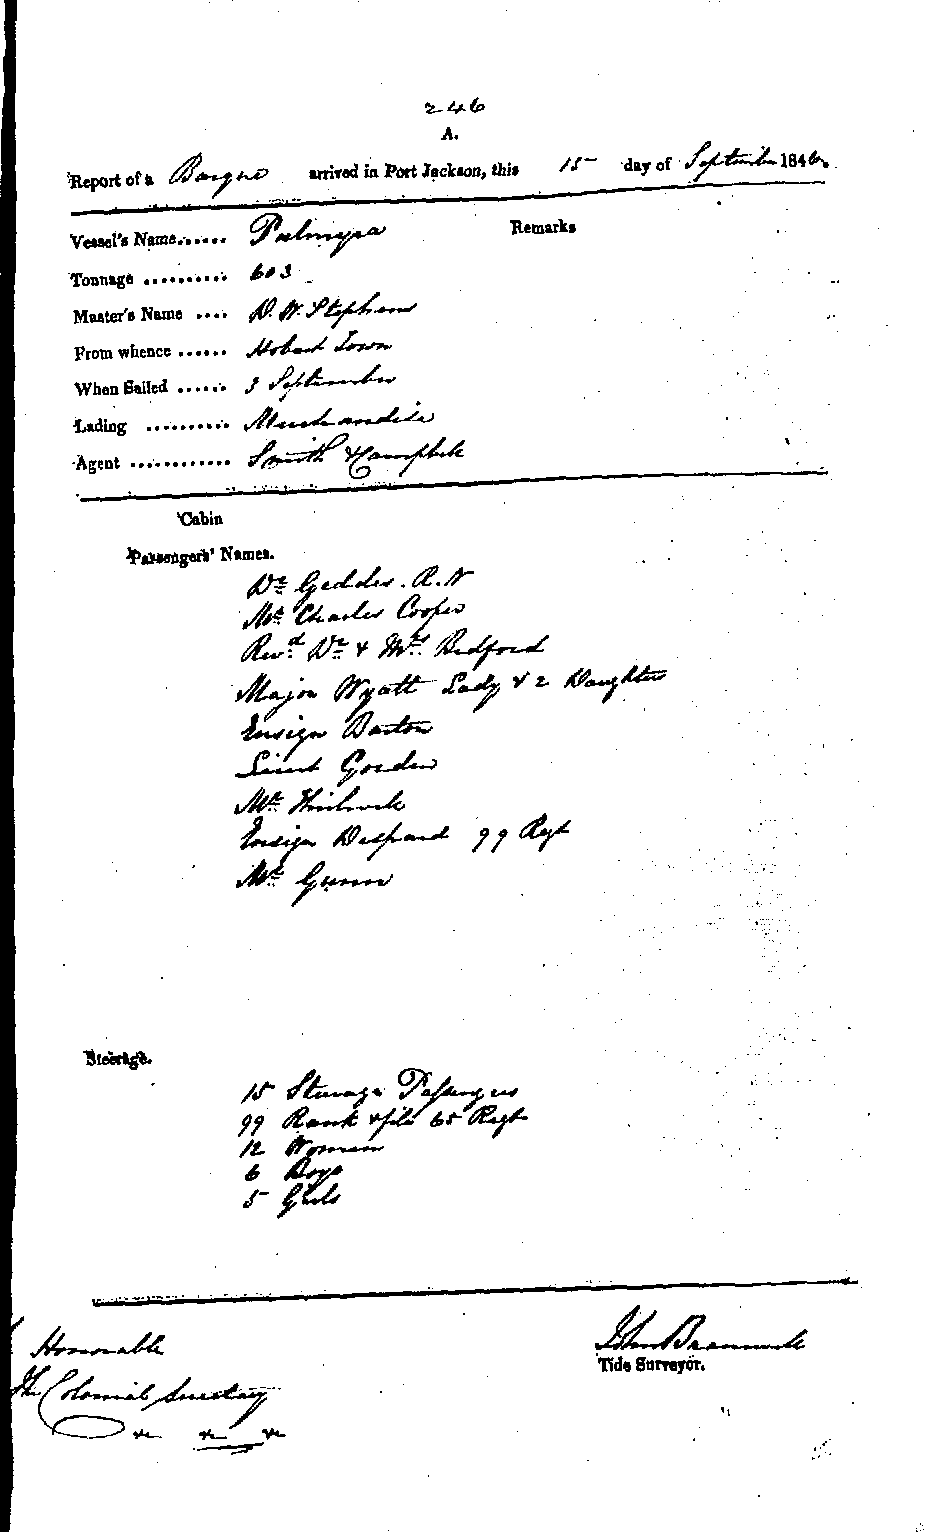 246
A.
Report of a Barque arrived in Port Jackson, this 15 day of September 1846.
Vessel's Name...... Palmyra
Remarks
Tonnage .......... 603
Master's Name .... D. W. Stephens
From whence ...... Hobart Town
When Sailed ...... 3 September
Lading .......... Merchandise
Agent ............ Smith & Campbell
Cabin
Passengers' Names.
Dr Geddes. R.N
Mr Charles Cooper
Revd. Dr & Mrs Bedford
Major Wyatt Lady & 2 Daughters
Ensign Barton
Lieut Gordon
Mr
Ensign Despard 99 Regt
Mr Gunn
Steerage.
15 Steerage Passengers
99 Rank & file 65 Regt
12 Women
6 Boys
5 Girls
Honorable
The Colonial Secretary
&c &c &c
John Bramwell
Tide Surveyor.